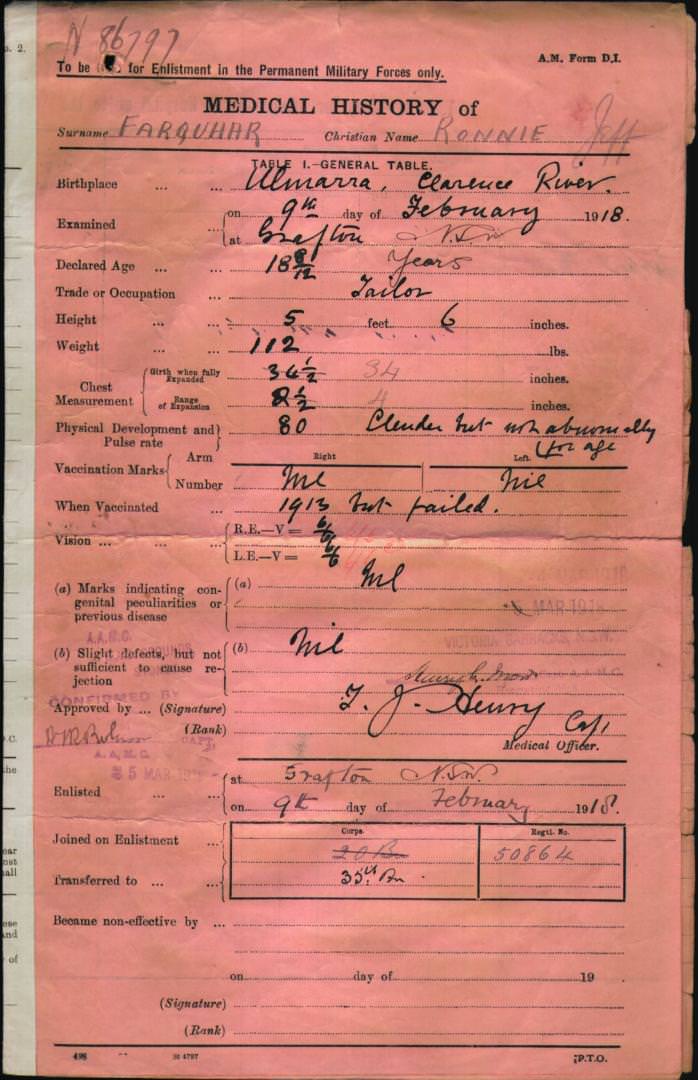 N 86797
A.M. Form D.I.
To be for Enlistment in the Permanent Military Forces only.
MEDICAL HISTORY of
Surname FARQUHAR Christian Name RONNIE Jeff
TABLE I.—GENERAL TABLE.
Birthplace ... ... Ulmarra, Clarence River.
Examined on 9th day of February 1918.
at Grafton N.S.W
Declared Age ... ... 18 8/12 Years
Trade or Occupation ... Tailor
Height ... ... 5 feet 6 inches.
Weight ... ... 112 lbs.
Chest Measurement
Girth when fully Expanded 34 1/2 34 inches.
Range of Expansion 2 1/2 4 inches.
Physical Development and Pulse rate 80 Clender but not abnormally for age
Right Left.
Vaccination Marks Arm
Number Nil Nil
When Vaccinated ... 1913 but failed.
Vision ... ... ... R.E.—V = 6/6
L.E.—V = 6/6
(a) Marks indicating congenital peculiarities or previous disease (a) Nil
5 MAR 1918
VICTORIA BARRACKS, N.S.W.
A.A.M.C.
(b) Slight defects, but not sufficient to cause rejection (b) Nil
CONFIRMED BY
Approved by ... (Signature) T. J. Henry
(Rank) Capt
Medical Officer.
CAPT.
A.A.M.C.
5 MAR 191
Enlisted ... ... at Grafton N.S.W.
on 9th day of February 1918.
Corps. Regtl. No.
Joined on Enlistment ... 20 Bn 50864
Transferred to ... ... 35th Bn.
Became non-effective by ...
on day of 19
(Signature)
(Rank)
498 30 4797 P.T.O.